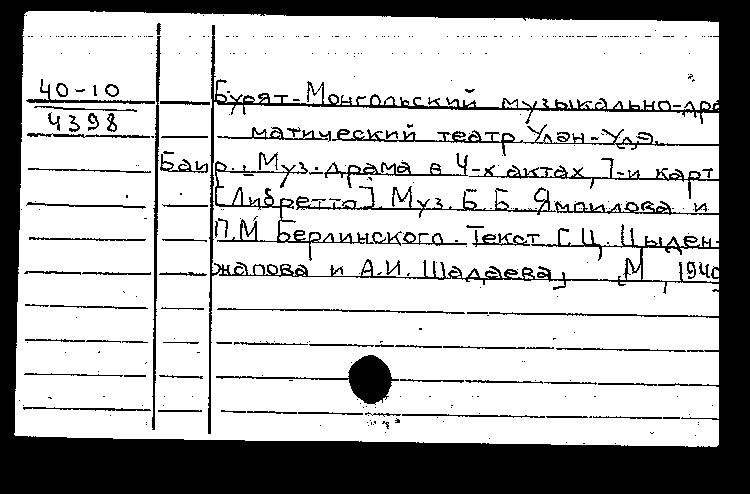 40-10
4398
Бурят-Монгольский музыкально-дра
матический театр. Улан-Удэ.
Баир. Муз. драма в 4-х актах, 7-и карт
[Либретто] Муз. Б. Б. Ямпилова и
П.М. Берлинского. Текст Г.Ц. Цыден-
жапова и А.И. Шадаева, [М., 1940